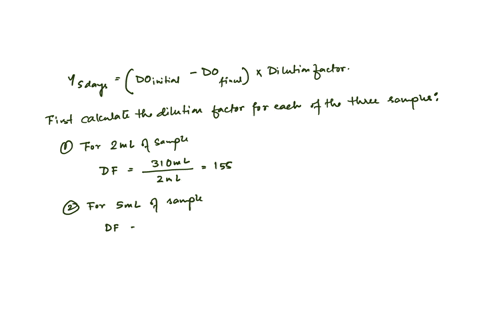 Y5days = (DOinitial - DOfinal) × Dilution factor.
First calculate the dilution factor for each of the three samples:
① For 2mL of sample
DF = 310mL / 2mL = 155
② For 5mL of sample
DF =